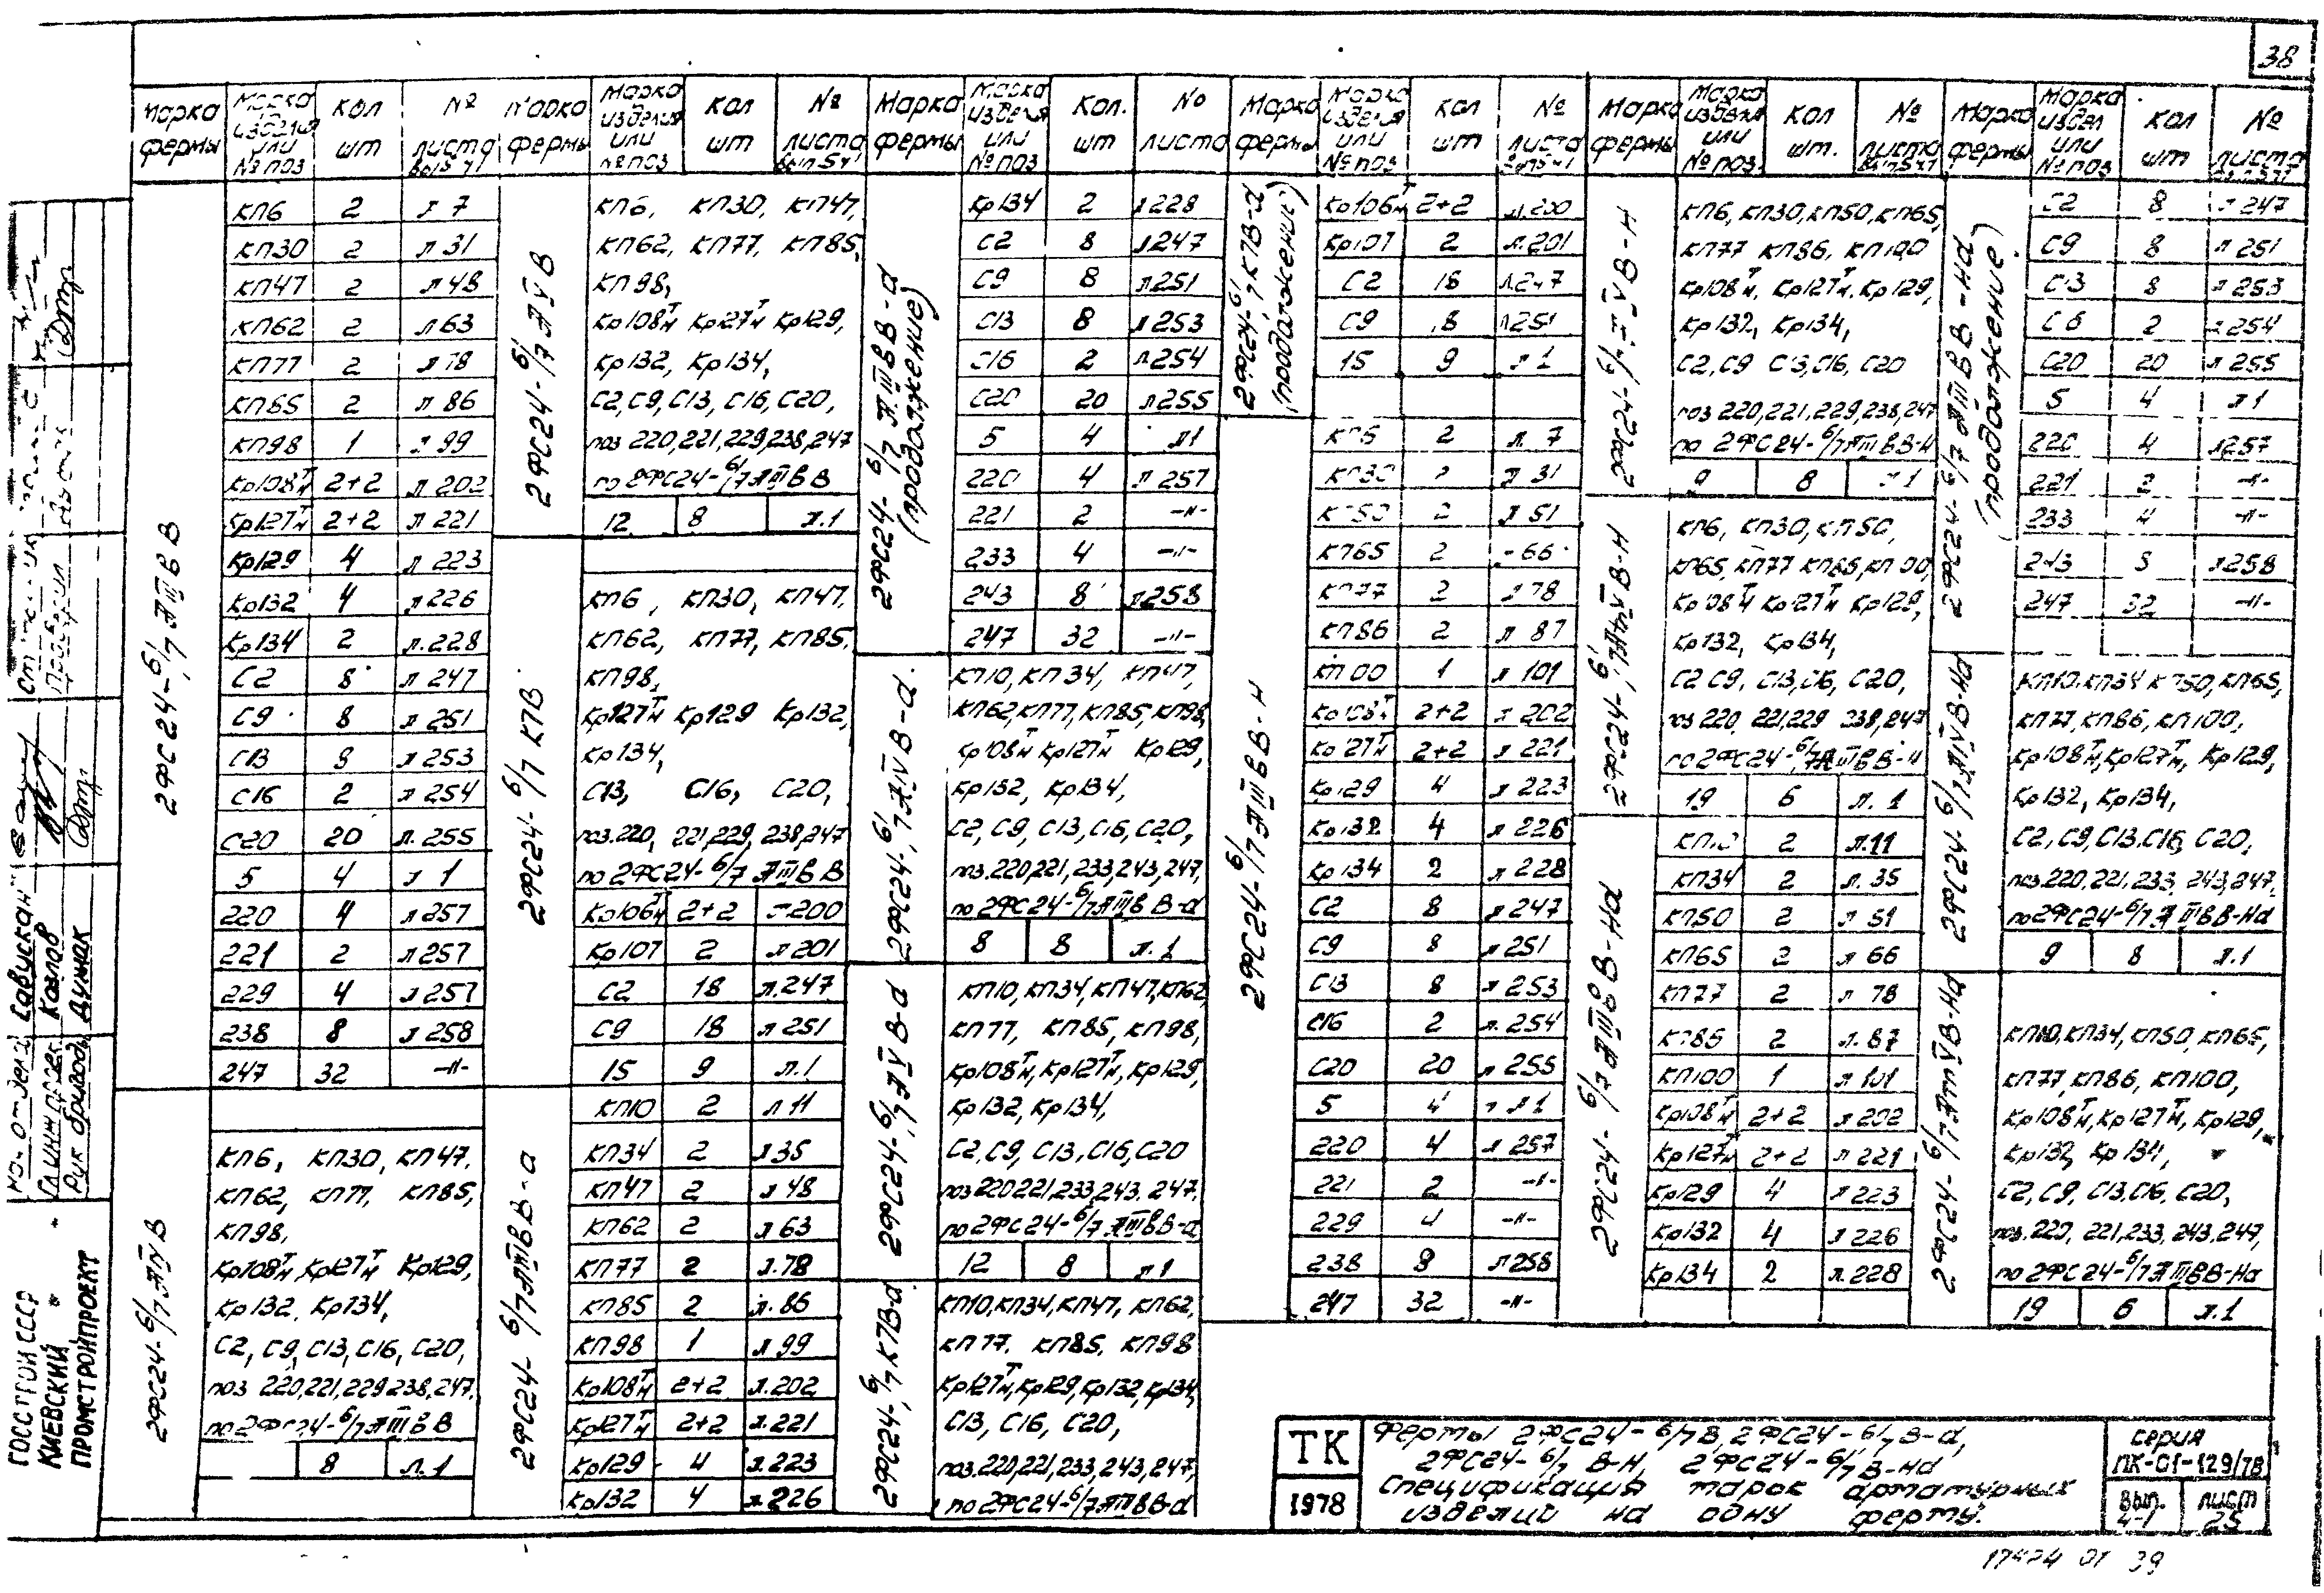 38
Марка фермы | Марка изделия или № поз | кол шт | № листа вып 5 ч1
2ФС24-6/7 АIIIвВ
КП6 2 л 7
КП30 2 л 31
КП47 2 л 48
КП62 2 л 63
КП77 2 л 78
КП85 2 л 86
КП98 1 л 99
Кр108т/н 2+2 л 202
Кр127т/н 2+2 л 221
Кр129 4 л 223
Кр132 4 л 226
Кр134 2 л.228
С2 8 л 247
С9 8 л 251
С13 8 л 253
С16 2 л 254
С20 20 л.255
5 4 л 1
220 4 л 257
221 2 л 257
229 4 л 257
238 8 л 258
247 32 -"-
2ФС24-6/7 АIVВ
КП6, КП30, КП47,
КП62, КП77, КП85,
КП98,
Кр108т/н, Кр127т/н Кр129,
Кр132, Кр134,
С2, С9, С13, С16, С20,
поз 220,221,229 238,247,
по 2ФС24-6/7 АIIIвВ
8 л.1
Марка фермы | Марка изделия или № поз | кол шт | № листа вып 5 ч1
2ФС24-6/7 АVВ
КП6, КП30, КП47,
КП62, КП77, КП85
КП98,
Кр108т/н Кр127т/н Кр129,
Кр132, Кр134,
С2, С9, С13, С16, С20,
поз 220,221,229,238,247
по 2ФС24-6/7АIIIвВ
12 8 л.1
2ФС24-6/7 К7В
КП6, КП30, КП47,
КП62, КП77, КП85.
КП98,
Кр127т/н Кр129 Кр132,
Кр134,
С13, С16, С20,
поз.220, 221,229, 238,247
по 2ФС24-6/7 АIIIвВ
Кр106т/н 2+2 л 200
Кр107 2 л 201
С2 18 л.247
С9 18 л 251
15 9 л.1
2ФС24-6/7АIIIвВ-а
КП10 2 л 11
КП34 2 л 35
КП47 2 л 48
КП62 2 л 63
КП77 2 л.78
КП85 2 л.86
КП98 1 л 99
Кр108т/н 2+2 л.202
Кр127т/н 2+2 л.221
Кр129 4 л.223
Кр132 4 л.226
Марка фермы | Марка изделия или № поз | Кол. шт | № листа
2ФС24-6/7 АIIIвВ-а (продолжение)
Кр134 2 л 228
С2 8 л 247
С9 8 л 251
С13 8 л 253
С16 2 л 254
С20 20 л 255
5 4 л1
220 4 л 257
221 2 -"-
233 4 -"-
243 8 л 258
247 32 -"-
2ФС24-6/7АIVВ-а
КП10, КП34, КП47,
КП62, КП77, КП85, КП98,
Кр108т/н Кр127т/н Кр129,
Кр132, Кр134,
С2, С9, С13, С16, С20,
поз.220,221,233,243,247,
по 2ФС24-6/7АIIIвВ-а
8 8 л.1
2ФС24-6/7АVВ-а
КП10, КП34, КП47, КП62
КП77, КП85, КП98,
Кр108т/н, Кр127т/н, Кр129,
Кр132, Кр134,
С2, С9, С13, С16, С20
поз 220 221,233,243, 247,
по 2ФС24-6/7 АIIIвВ-а
12 8 л 1
2ФС24-6/7К7В-а
КП10, КП34, КП47, КП62,
КП77, КП85, КП98
Кр127т/н, Кр129, Кр132, Кр134,
С13, С16, С20,
поз.220,221,233,243,247,
по 2ФС24-6/7АIIIвВ-а
Марка фермы | Марка изделия или № поз | кол шт | № листа вып 5 ч1
2ФС24-6/7К7В-а (продолжение)
Кр106т/н 2+2 л.200
Кр107 2 л.201
С2 18 л.247
С9 8 л251
15 9 л 1
2ФС24-6/7АIIIвВ-Н
КП6 2 л. 7
КП30 2 л 31
КП50 2 л 51
КП65 2 66
КП77 2 л 78
КП86 2 л 87
КП100 1 л 101
Кр108т/н 2+2 л 202
Кр127т/н 2+2 л 221
Кр129 4 л 223
Кр132 4 л 226
Кр134 2 л 228
С2 8 л 247
С9 8 л 251
С13 8 л 253
С16 2 л. 254
С20 20 л 255
5 4 л 1
220 4 л 257
221 2 -"-
229 4 -"-
238 8 л 258
247 32 -"-
Марка фермы | Марка изделия или № поз. | Кол шт. | № листа вып 5 ч1
2ФС24-6/7 АIVВ-Н
КП6, КП30, КП50, КП65,
КП77 КП86, КП100
Кр108т/н, Кр127т/н, Кр129,
Кр132, Кр134,
С2, С9 С13, С16, С20
поз 220,221,229,238,247
по 2ФС24-6/7АIIIвВ-Н
9 8 л 1
2ФС24-6/7АтVВ-Н
КП6, КП30, КП50,
КП65, КП77 КП86, КП100,
Кр108т/н Кр127т/н Кр129,
Кр132, Кр134,
С2 С9, С13, С16, С20,
поз 220, 221,229 238,247
по 2ФС24-6/7АIIIвВ-Н
19 6 л. 1
2ФС24-6/7АIIIвВ-На
КП10 2 л.11
КП34 2 л. 35
КП50 2 л 51
КП65 2 л 66
КП77 2 л 78
КП86 2 л. 87
КП100 1 л 101
Кр108т/н 2+2 л 202
Кр127т/н 2+2 л 221
Кр129 4 л 223
Кр132 4 л 226
Кр134 2 л.228
Марка фермы | Марка издел или № поз | Кол шт | № листа
2ФС24-6/7 АIIIвВ-На (продолжение)
С2 8 л 247
С9 8 л 251
С13 8 л 253
С16 2 л 254
С20 20 л 255
5 4 л 1
220 4 л257
221 2 -"-
233 4 -"-
243 8 л 258
247 32 -"-
2ФС24-6/7АIVВ-На
КП10, КП34 КП50, КП65,
КП77, КП86, КП100,
Кр108т/н, Кр127т/н, Кр129,
Кр132, Кр134,
С2, С9, С13, С16, С20,
поз.220,221,233, 243,247,
по 2ФС24-6/7 АIIIвВ-На
9 8 л.1
2ФС24-6/7АтVВ-На
КП10, КП34, КП50, КП65,
КП77, КП86, КП100,
Кр108т/н, Кр127т/н, Кр129,
Кр132, Кр134,
С2, С9, С13, С16, С20,
поз.220, 221,233, 243,247,
по 2ФС24-6/7АIIIвВ-На
19 6 л.1
Савускан
Козлов
Дужак
Нач отдела
Гл инж проек
Рук бригады
ГОССТРОЙ СССР
КИЕВСКИЙ
ПРОМСТРОЙПРОЕКТ
ТК
1978
Фермы 2ФС24-6/7В, 2ФС24-6/7В-а,
2ФС24-6/7 В-Н, 2ФС24-6/7В-На
спецификация марок арматурных
изделий на одну ферму.
серия
ПК-01-129/78
Вып. 4-1
лист 25
39